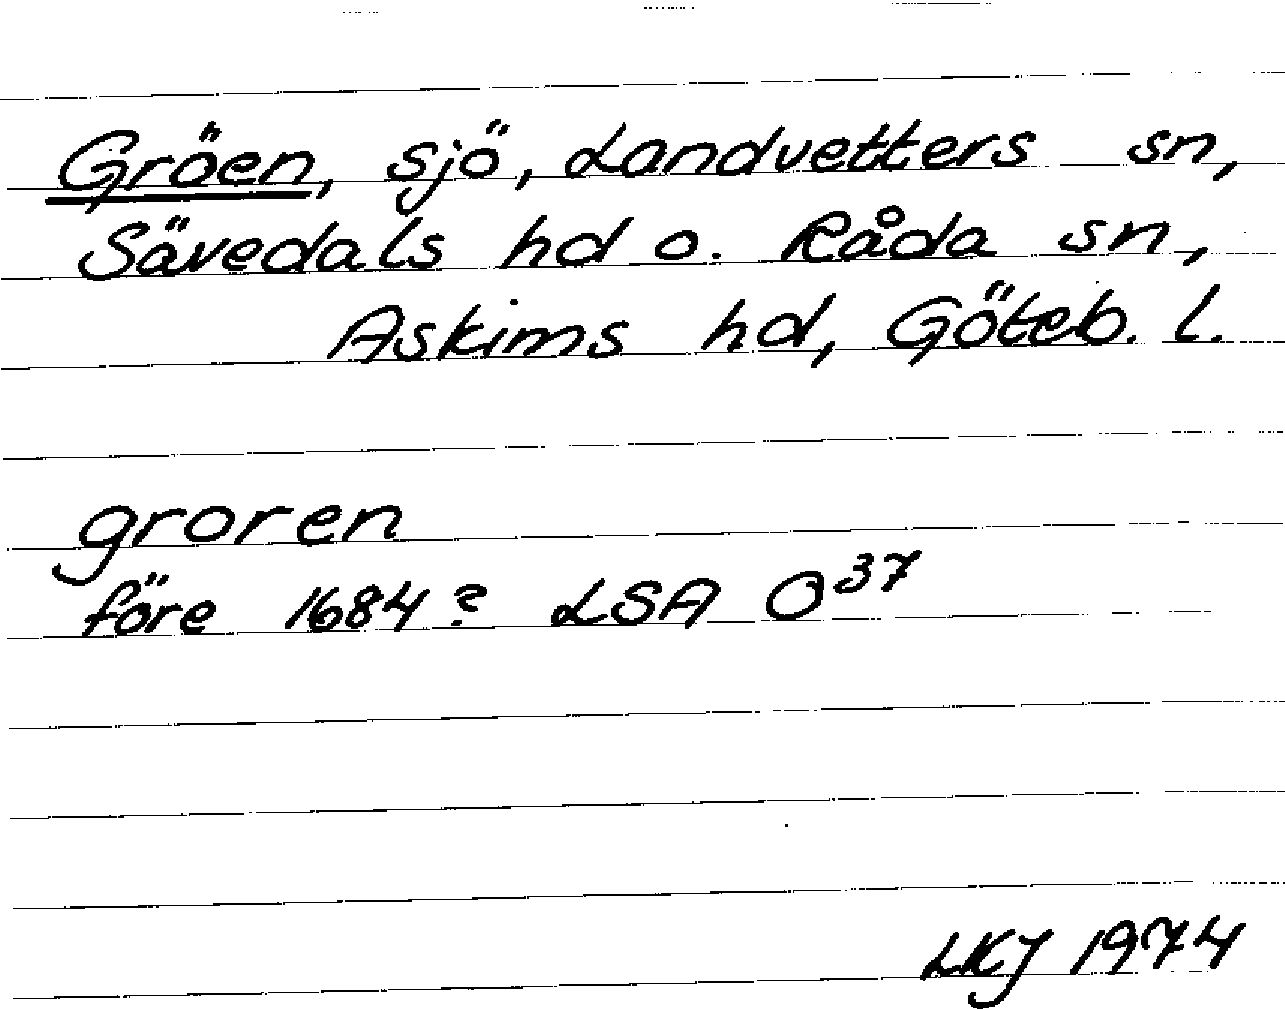 Gröen, sjö, Landvetters sn,
Sävedals hd o. Råda sn,
Askims hd, Göteb. l.
groren
före 1684? LSA O37
LKJ 1974